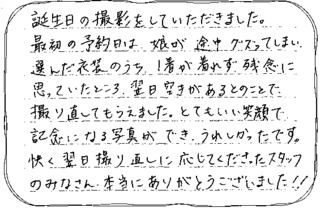 誕生日の撮影をしていただきました。
最初の予約日は、娘が途中グズってしまい
選んだ衣装のうち、1着が着れず残念に
思っていたところ、翌日空きがあるとのことで
撮り直してもらえました。とてもいい笑顔で
記念になる写真ができ、うれしかったです。
快く翌日撮り直しに応じてくださったスタッフ
のみなさん、本当にありがとうございました!!